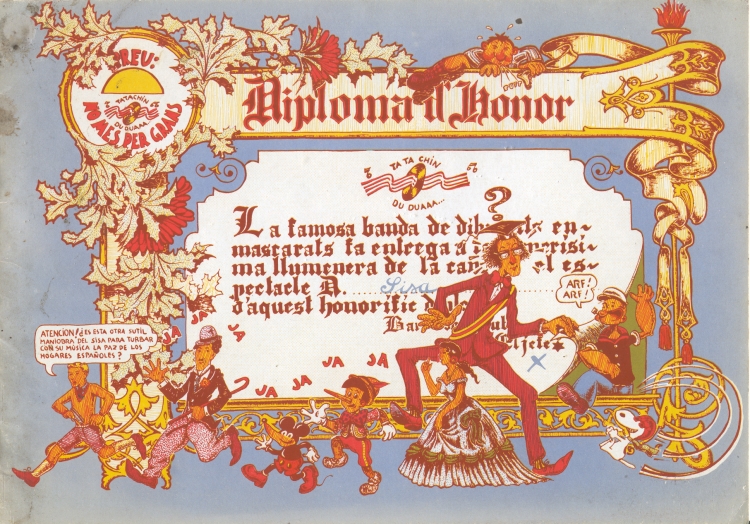 NO MÉS PER GRANS
TATACHÍN
DU DUAAA...
Diploma d'Honor
TA TA CHÍN
DU DUAAA...
?
La famosa banda de en-
mascarats fa entrega a
ma llumenera de la el es-
pectacle D. Sisa
d'aquest honorífic
x
ARF!
ARF!
ATENCION! ¿ES ESTA OTRA SUTIL
MANIOBRA DEL SISA PARA TURBAR
CON SU MÚSICA LA PAZ DE LOS
HOGARES ESPAÑOLES?
JA
JA
JA
JA
JA
JA
JA